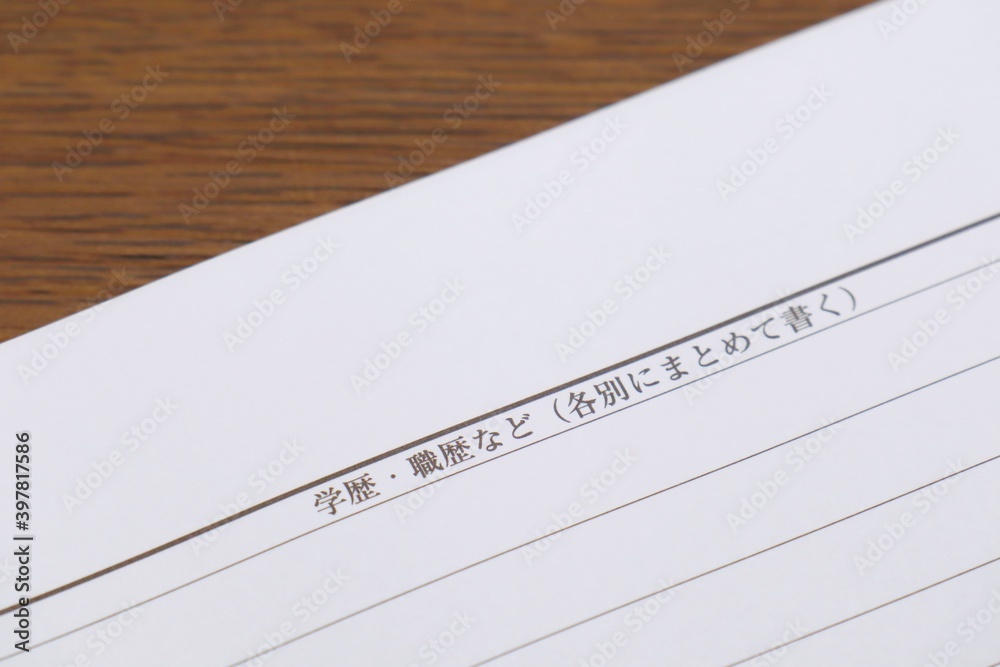 学歴・職歴など（各別にまとめて書く）
Adobe Stock | #397817586